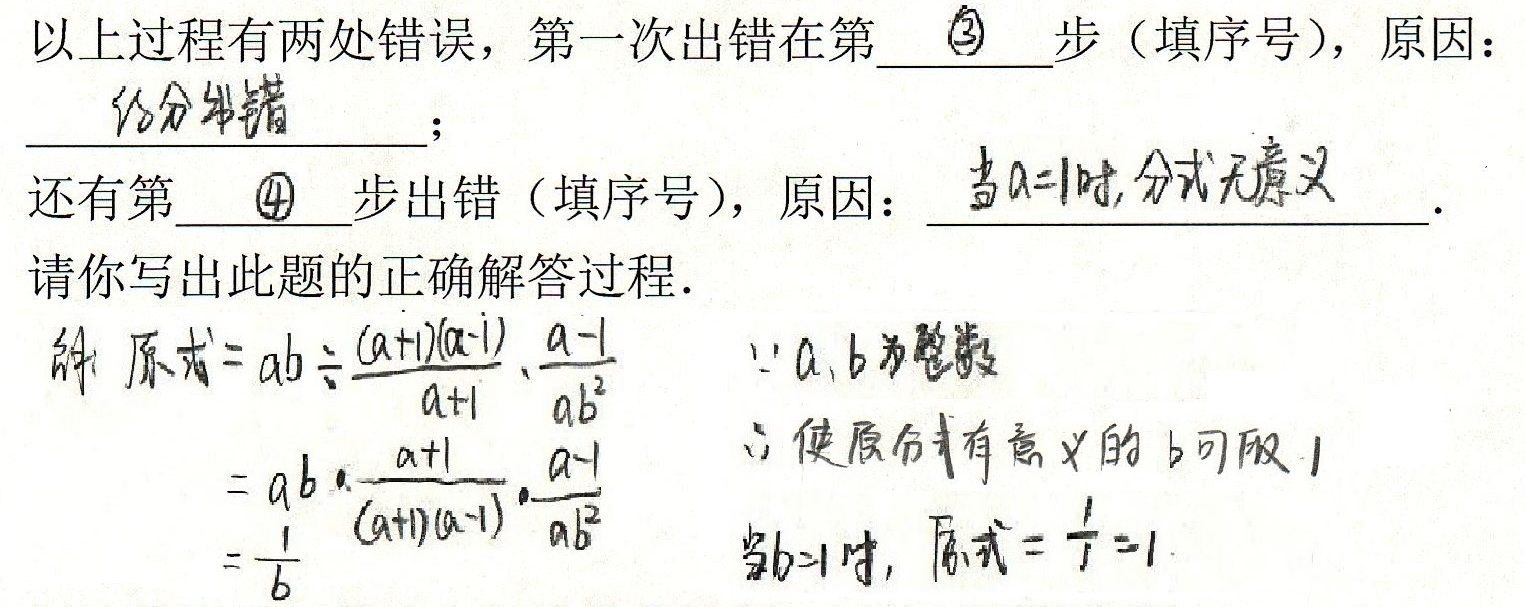 以上过程有两处错误，第一次出错在第 ③ 步（填序号），原因：
约分出错；
还有第 ④ 步出错（填序号），原因：当a=1时,分式无意义．
请你写出此题的正确解答过程．
解: 原式=ab÷\frac{(a+1)(a-1)}{a+1}·\frac{a-1}{ab²}
=ab·\frac{a+1}{(a+1)(a-1)}·\frac{a-1}{ab²}
=\frac{1}{b}
∵a、b为整数
∴使原分式有意义的b可取1
当b=1时，原式=\frac{1}{1}=1.